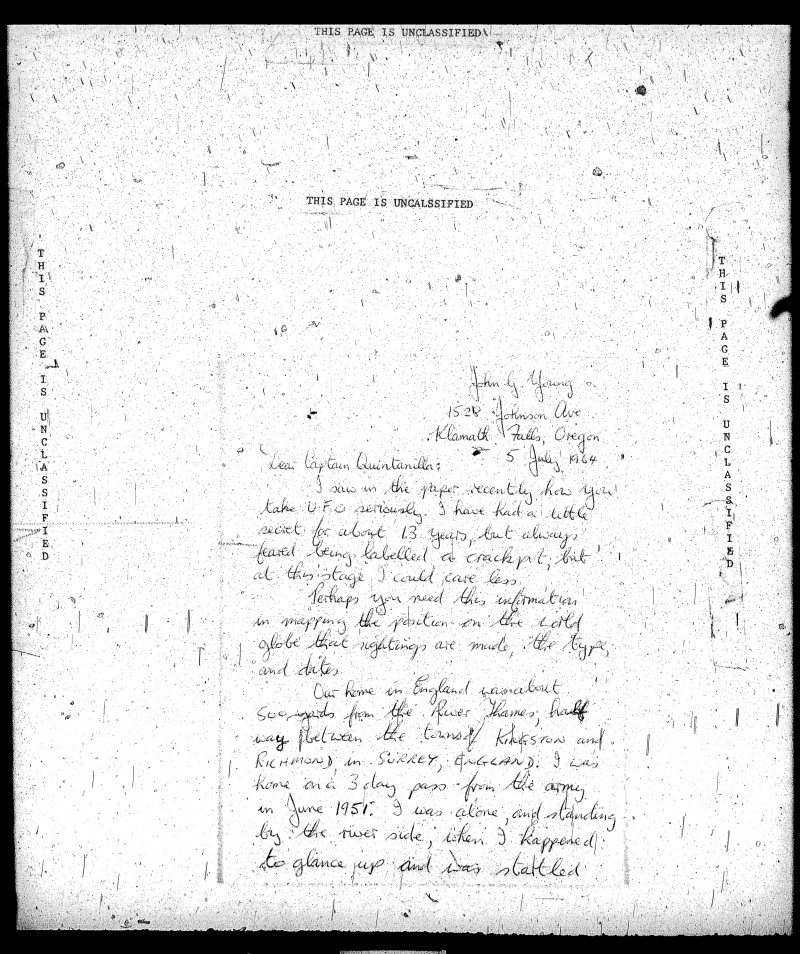 THIS PAGE IS UNCLASSIFIED
THIS PAGE IS UNCALSSIFIED
THIS PAGE IS UNCLASSIFIED
THIS PAGE IS UNCLASSIFIED
John G Young
1528 Johnson Ave
Klamath Falls, Oregon
5 July, 1964
Dear Captain Quintanilla:
I saw in the paper recently how you
take U.F.O seriously. I have had a little
secret for about 13 years, but always
feared being labelled a crackpot, but
at this stage I could care less.
Perhaps you need this information
in mapping the position on the world
globe that sightings are made, the type,
and dates
Our home in England was about
500 yards from the River Thames, half
way between the towns of KINGSTON and
RICHMOND in SURREY, ENGLAND. I was
home on a 3 day pass from the army
in June 1951. I was alone, and standing
by the river side, when I happened
to glance up and was startled